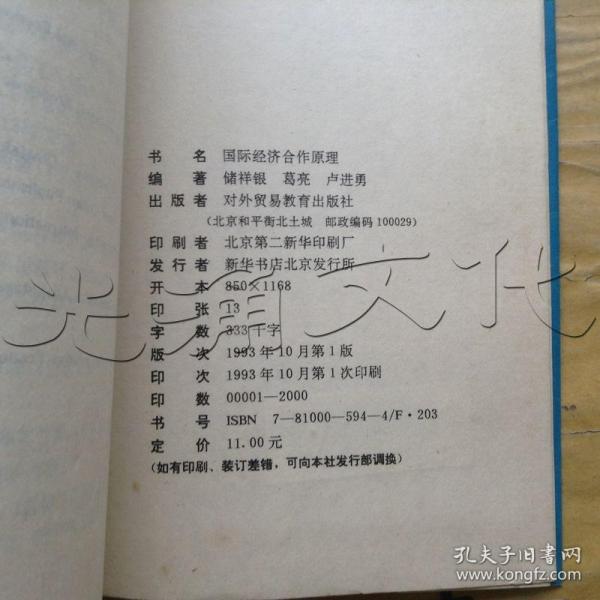 书 名 国际经济合作原理
编 著 储祥银 葛亮 卢进勇
出版者 对外贸易教育出版社
(北京和平街北土城 邮政编码100029)
印刷者 北京第二新华印刷厂
发行者 新华书店北京发行所
开 本 850×1168
印 张 13
字 数 333千字
版 次 1993年10月第1版
印 次 1993年10月第1次印刷
印 数 00001—2000
书 号 ISBN 7—81000—594—4/F·203
定 价 11.00元
(如有印刷、装订差错，可向本社发行部调换)
孔夫子旧书网
www.kongfz.com